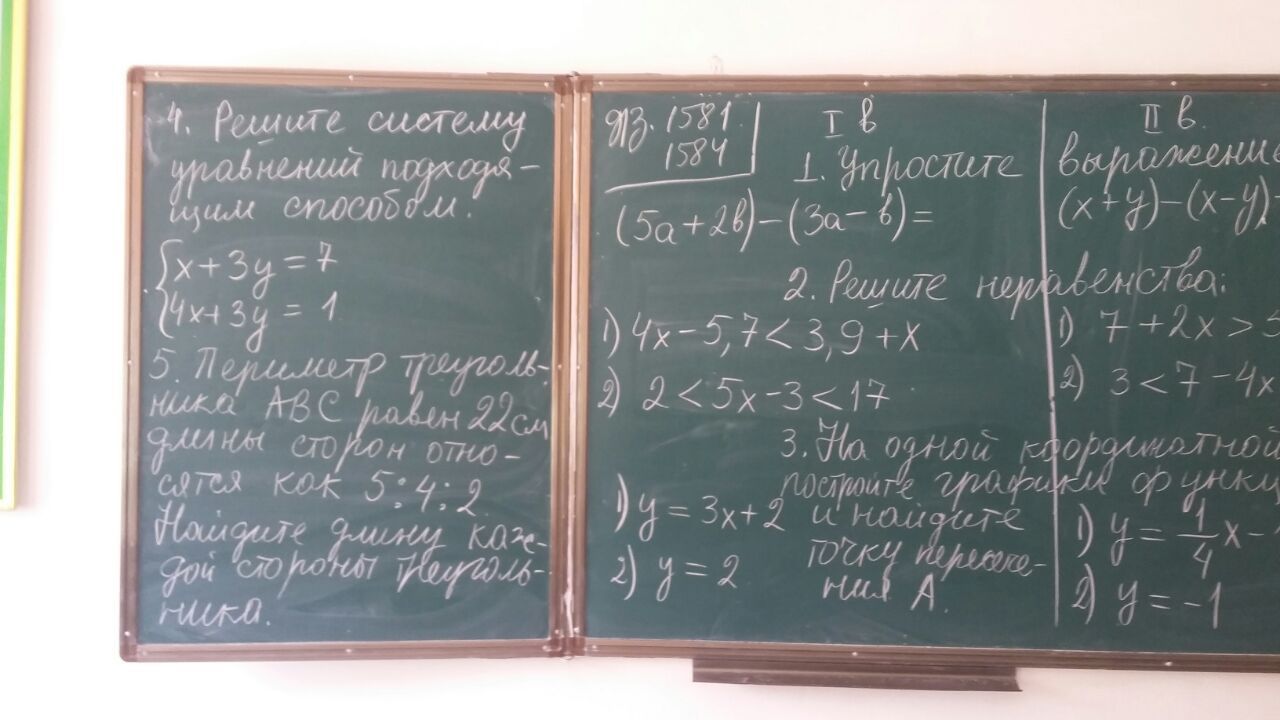 4. Решите систему
уравнений подходя-
щим способом.
{x+3y=7
{4x+3y=1
5. Периметр треуголь-
ника ABC равен 22см
длины сторон отно-
сятся как 5:4:2
Найдите длину каж-
дой стороны треуголь-
ника.
ДЗ. 1581.
1584
I в
II в.
1. Упростите выражение
(5a+2b)-(3a-b)=
(x+y)-(x-y)
2. Решите неравенства:
1) 4x-5,7<3,9+x
2) 2<5x-3<17
1) 7+2x>5
2) 3<7-4x
3. На одной координатной
постройте графики функци
и найдите
точку пересече-
ния A.
1) y=3x+2
2) y=2
1) y=1/4x-
2) y=-1